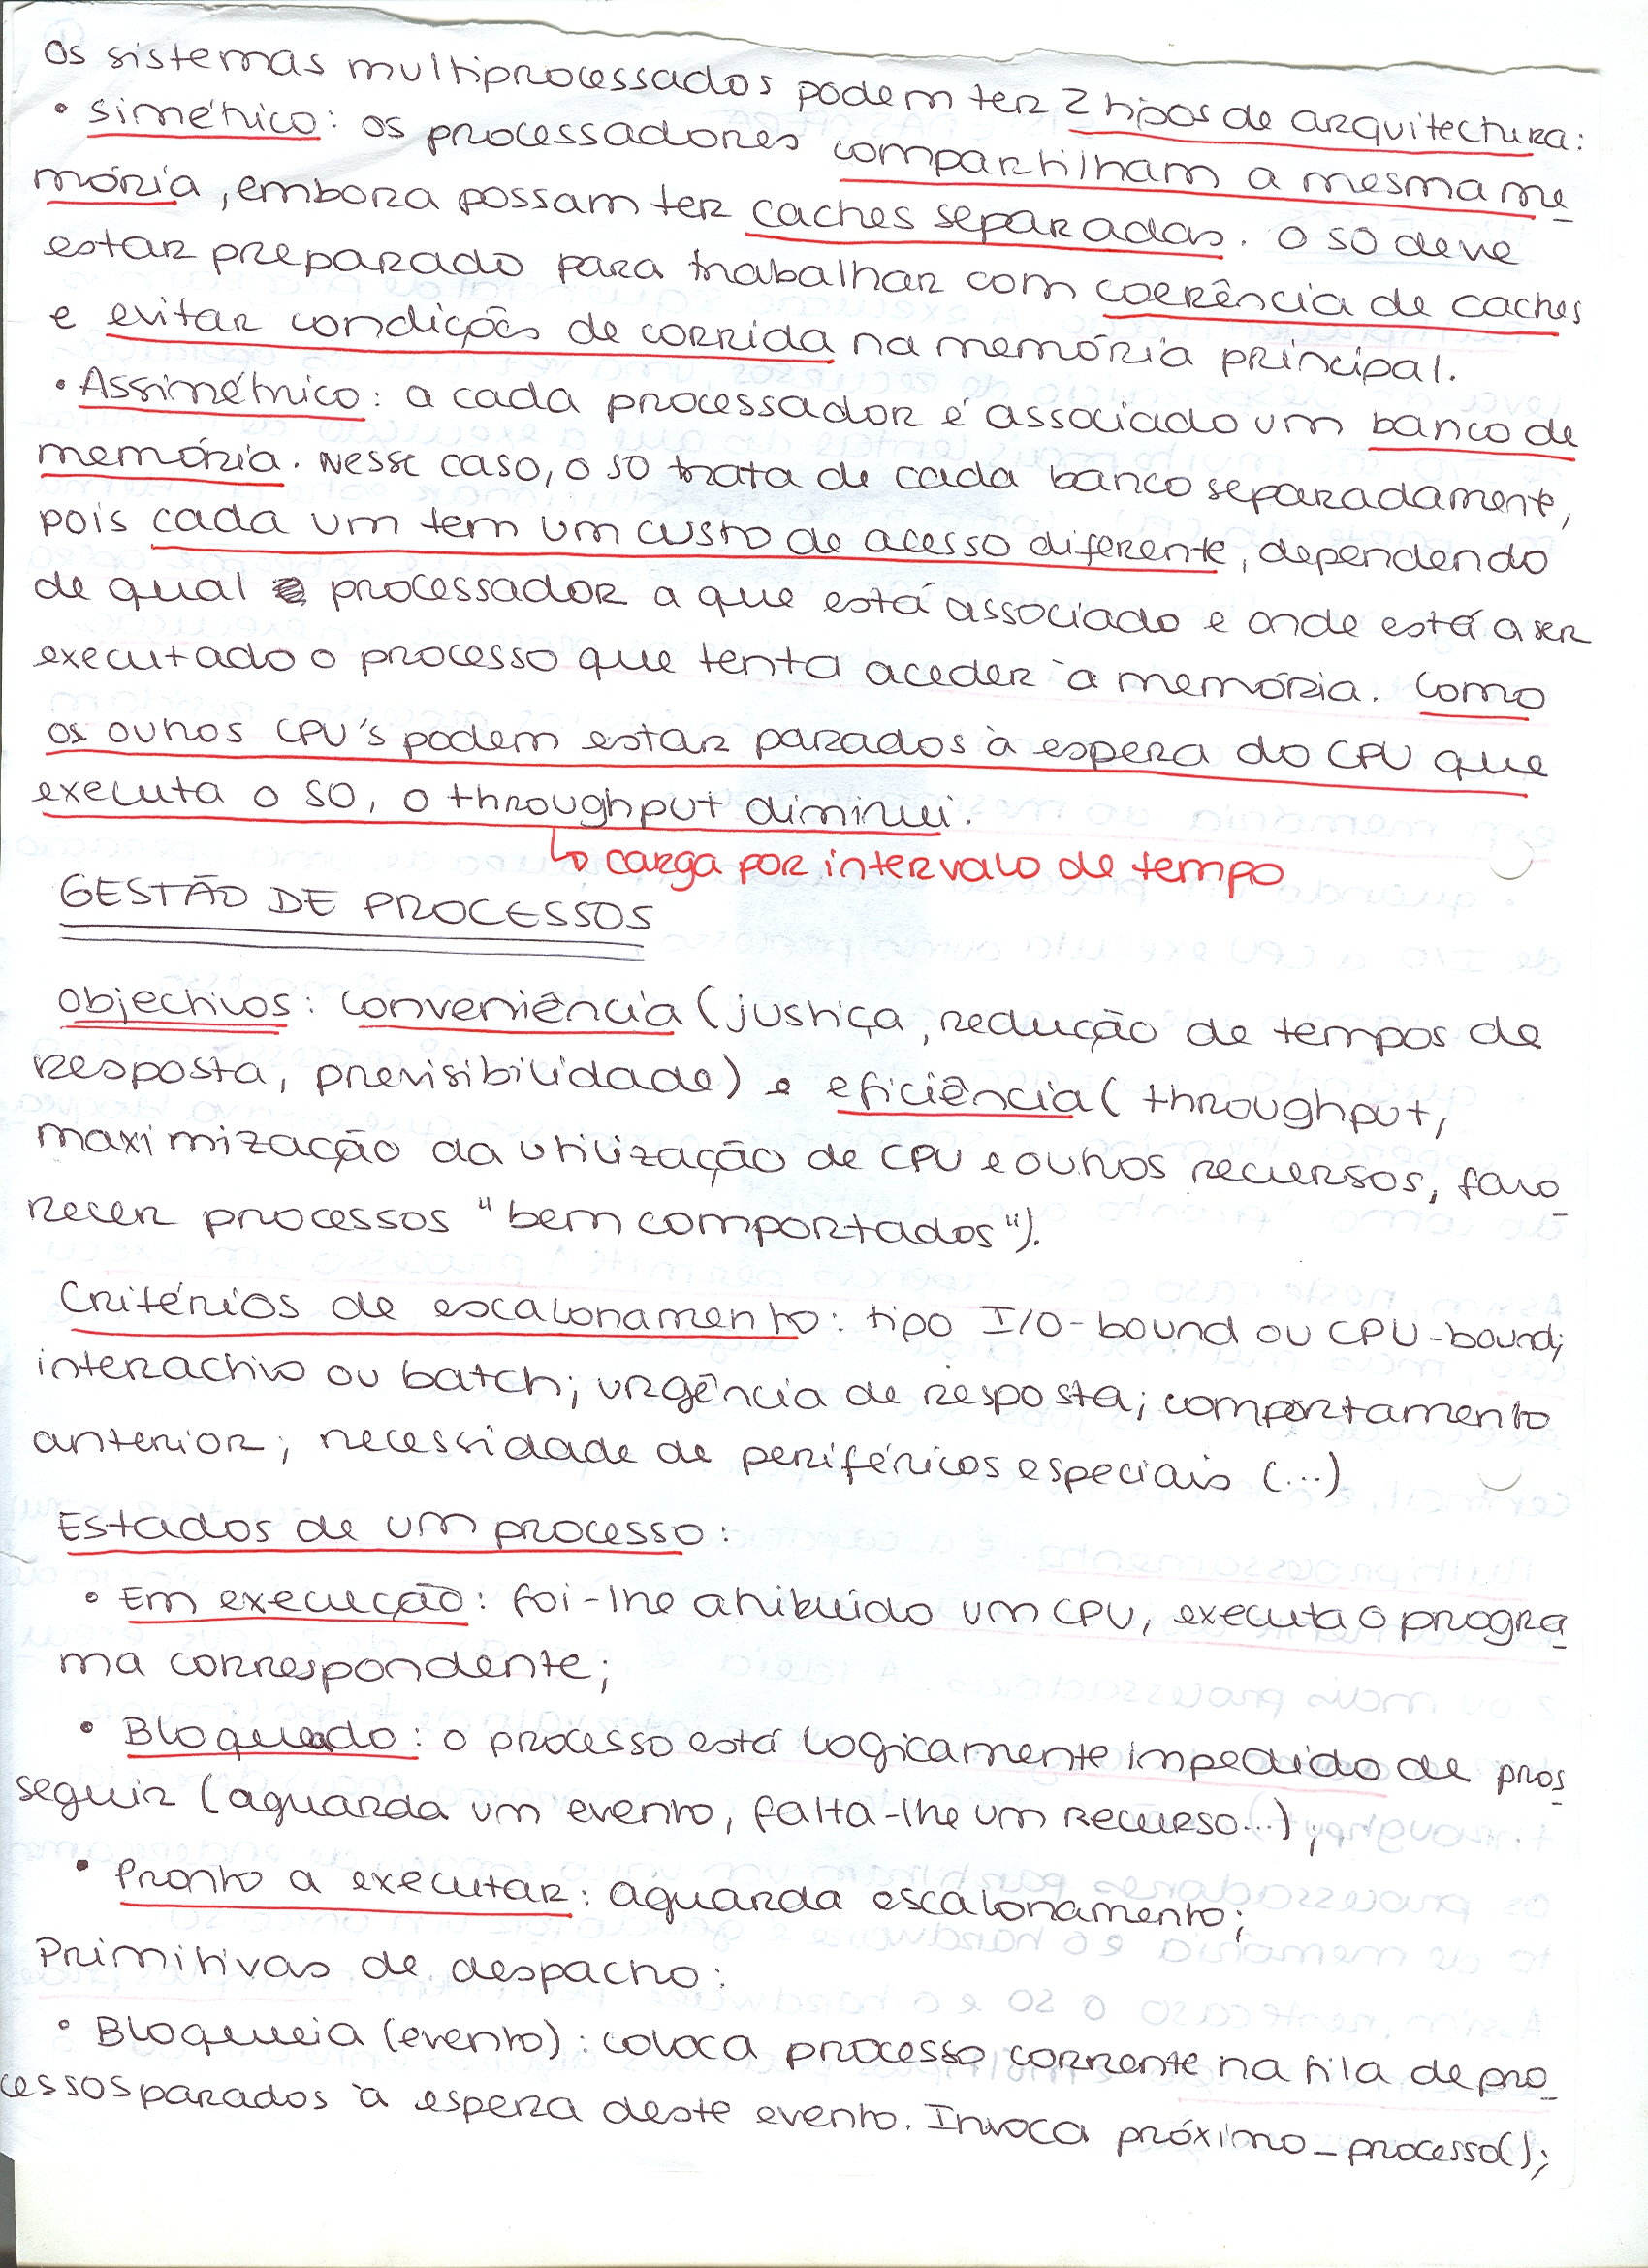 Os sistemas multiprocessados podem ter 2 tipos de arquitectura:
• Simétrico: os processadores compartilham a mesma me
mória, embora possam ter caches separadas. O SO deve
estar preparado para trabalhar com coerência de caches
e evitar condições de corrida na memória principal.
• Assimétrico: a cada processador é associado um banco de
memória. Nesse caso, o SO trata de cada banco separadamente,
pois cada um tem um custo de acesso diferente, dependendo
de qual processador a que está associado e onde está a ser
executado o processo que tenta aceder à memória. Como
os outros CPU's podem estar parados à espera do CPU que
executa o SO, o throughput diminui.
↳ carga por intervalo de tempo
GESTÃO DE PROCESSOS
Objectivos: conveniência (justiça, redução de tempos de
resposta, previsibilidade) e eficiência (throughput,
maximização da utilização de CPU e outros recursos, favo
recer processos "bem comportados").
Critérios de escalonamento: tipo I/O-bound ou CPU-bound;
interactivo ou batch; urgência de resposta; comportamento
anterior; necessidade de periféricos especiais (...)
Estados de um processo:
• Em execução: foi-lhe atribuído um CPU, executa o progra
ma correspondente;
• Bloqueado: o processo está logicamente impedido de pros
seguir (aguarda um evento, falta-lhe um recurso...);
• Pronto a executar: aguarda escalonamento;
Primitivas de despacho:
• Bloqueia (evento): coloca processo corrente na fila de pro
cessos parados à espera deste evento. Invoca próximo_processo();